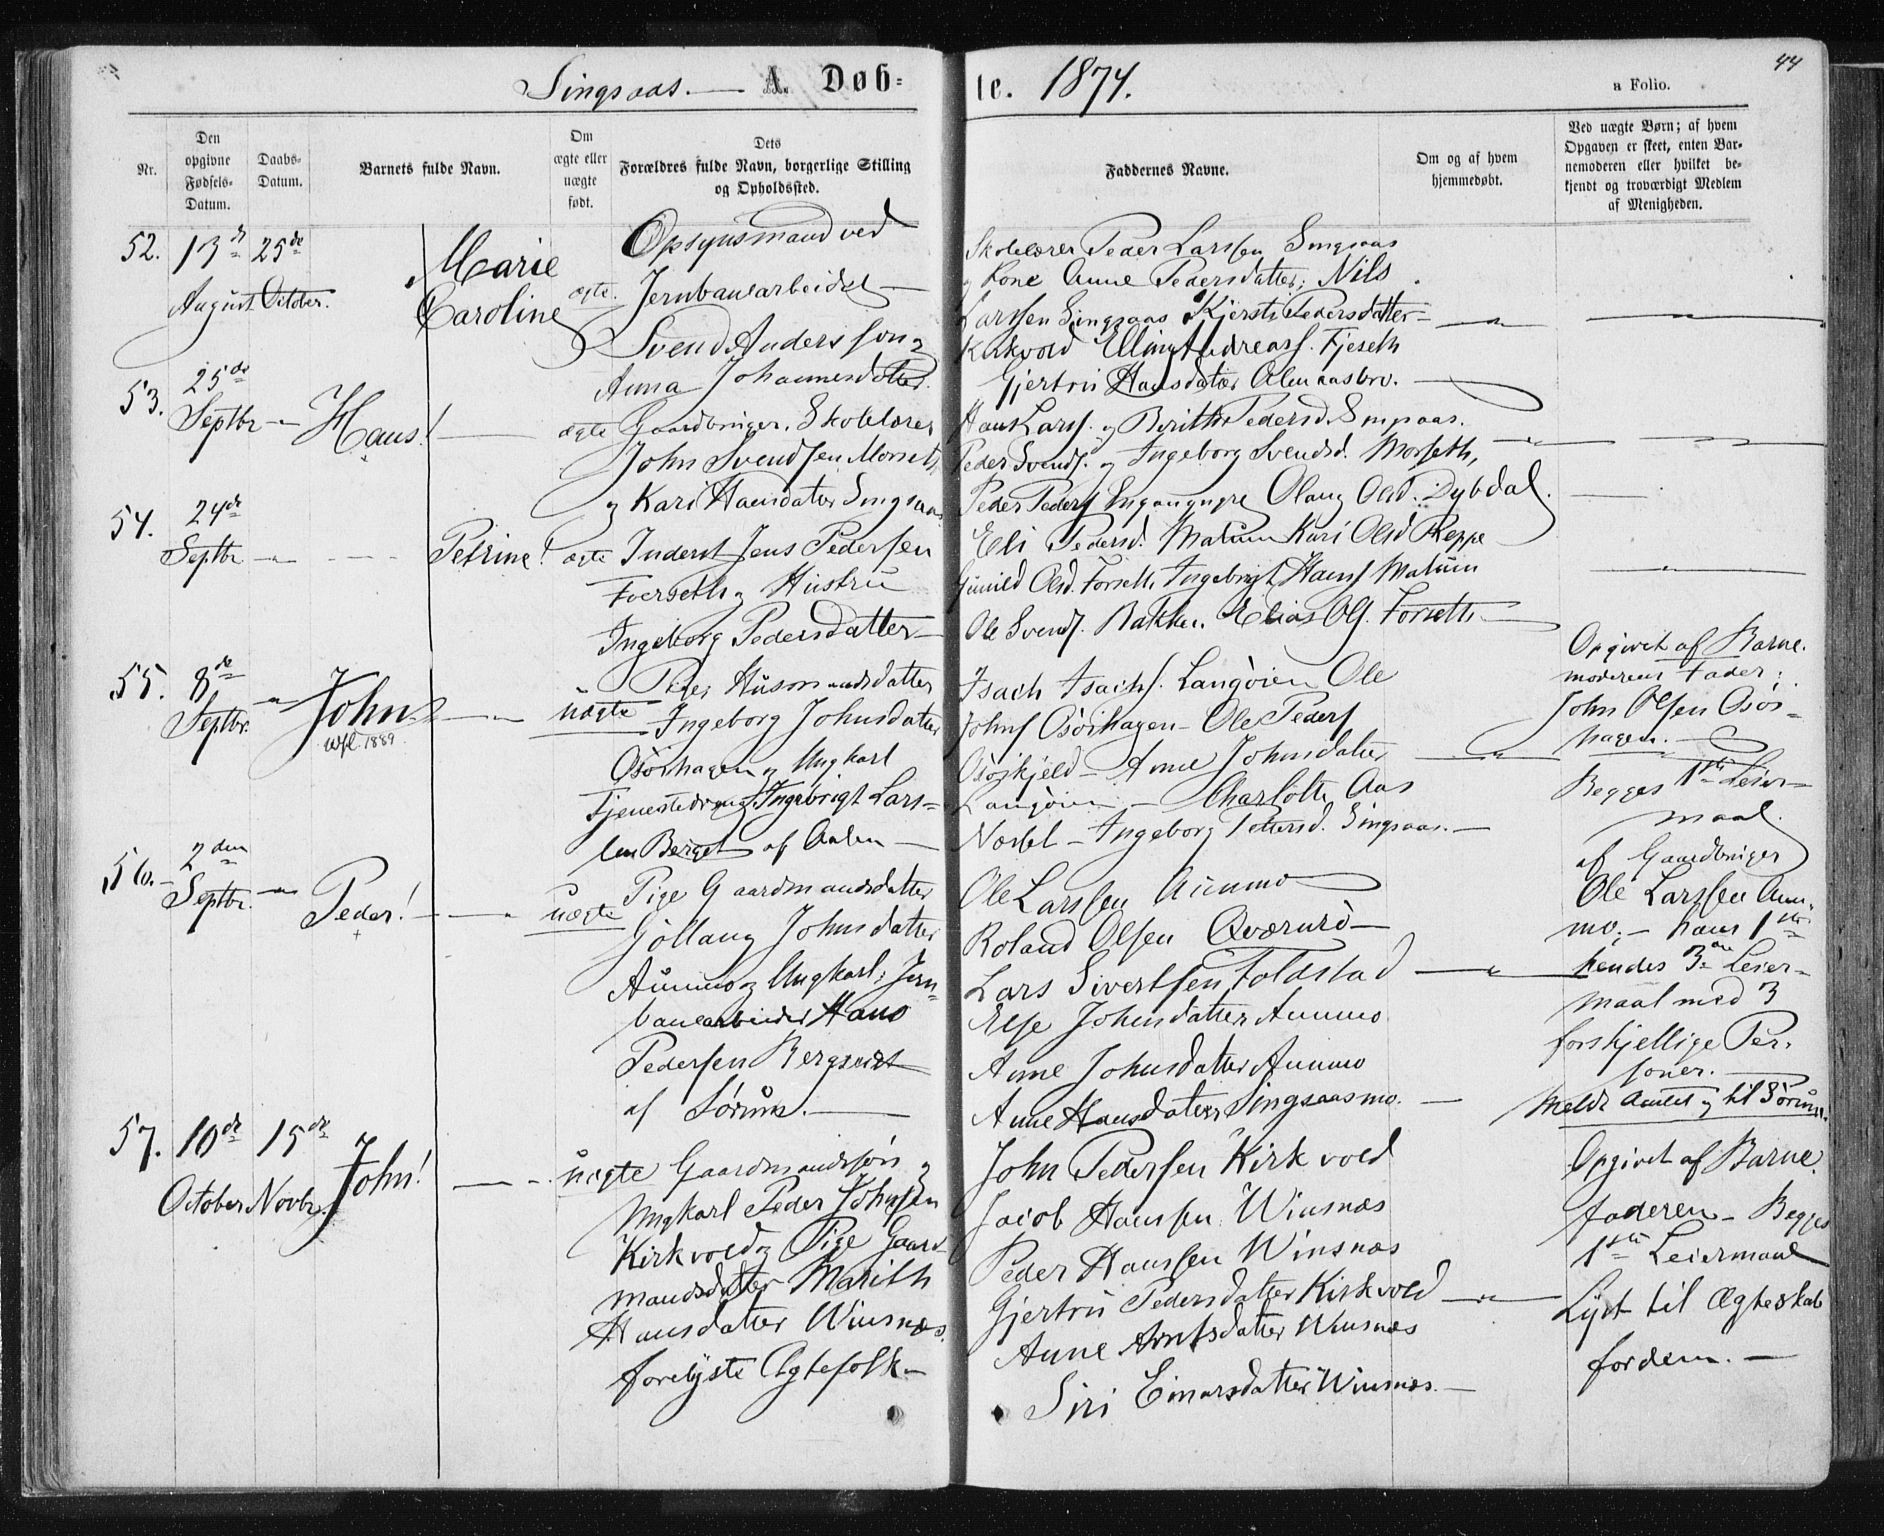 Singsaas. — A. Døb=
te. 1874.
44
a Folio.
Nr.
Den opgivne Fødsels-Datum.
Daabs-Datum.
Barnets fulde Navn.
Om ægte eller uægte født.
Dets Forældres fulde Navn, borgerlige Stilling og Opholdssted.
Faddernes Navne.
Om og af hvem hjemmedøbt.
Ved uægte Børn; af hvem Opgaven er skeet, enten Barnemoderen eller hvilket bekjendt og troværdigt Medlem af Menigheden.
52. 13de August 25de October.
Marie
Caroline
ægte.
Opsynsmand ved
Jernbanearbeidet
Svend Andersson og
Anna Johannesdatter.
Skolelærer Peder Larssen Singsaas
og Kone Anne Pedersdatter; Nils
Larssen Singsaas Kjersti Pedersdatter
Kirkvold Elling Andreass. Fjeseth
Gjertru Hansdatter Almaasbro.
53. 25de Septbr — Hans!
ægte Gaardbruger, Skolelærer
John Svendsen Morseth
og Kari Hansdatter Singsaas
Hans Larss. og Berith Pedersd. Singsaas.
Peder Svends. og Ingeborg Svendsd. Morseth,
54. 24de Septbr — Petrine!
ægte Inderst Jens Pedersen
Foerseth og Hustru
Ingeborg Pedersdatter
Peder Peders Olaug Olsd. Dybdal.
Eli Pedersd. Matum Kari Olsd Reppe
Gunild Olsd. Forseth Ingebrigt Hans Matum
Ole Svends. Bakken Elias Ols. Forseth
55. 8de Septbr. — John.
wfl. 1889.
uægte
Pige, Husmandsdatter
Ingeborg Johnsdatter
Osøihagen og Ungkarl
Tjenestedreng Ingebrigt Lars=
sen Berget af Aalen
Isach Isachs. Langøien Ole
Johns Osøihagen — Ole Peders
Osøikjeld — Anne Johnsdatter
Langøien — Charlotte Aas
Næsset — Ingeborg Pettersd. Singsaas.
Opgivet af Barne.
moderens Fader;
John Olsen Osøi=
hagen.
Begges 1ste Leier=
maal.
56. 2den Septbr. — Peder!
uægte
Pige Gaardmandsdatter
Gøllaug Johnsdatter
Aunmo og Ungkarl; Jern=
banearbeider Hans
Pedersen
af Sørum.
Ole Larssen Aunmo
Roland Olsen Qværnrø
Lars Sivertsen Foldstad
Else Johnsdatter Aunmo
Anne Johnsdatter Aunmo
Anne Hansdatter Singsaasmo.
af Gaardbruger
Ole Larssen Aun=
mo. — hans 1ste
hendes 3die Leier=
maal med 3
forskjellige Per=
soner.
Meldt Amtet og til Sørum.
57. 10de October 15de Novbr. John!
uægte Gaardmandssøn og
Ungkarl Peder Johnsen
Kirkvold og Pige Gaard
mandsdatter Marith
Hansdatter Winsnæs.
forelyste Ægtefolk
John Pedersen Kirkvold
Jacob Hanssen Winsnæs
Peder Hanssen Winsnæs
Gjertru Pedersdatter Kirkvold
Anne Arntsdatter Winsnæs
Siri Einarsdatter Winsnæs.
Opgivet af Barne
faderen — Begges
1ste Leiermaal
Lyst til Ægteskab
for dem.